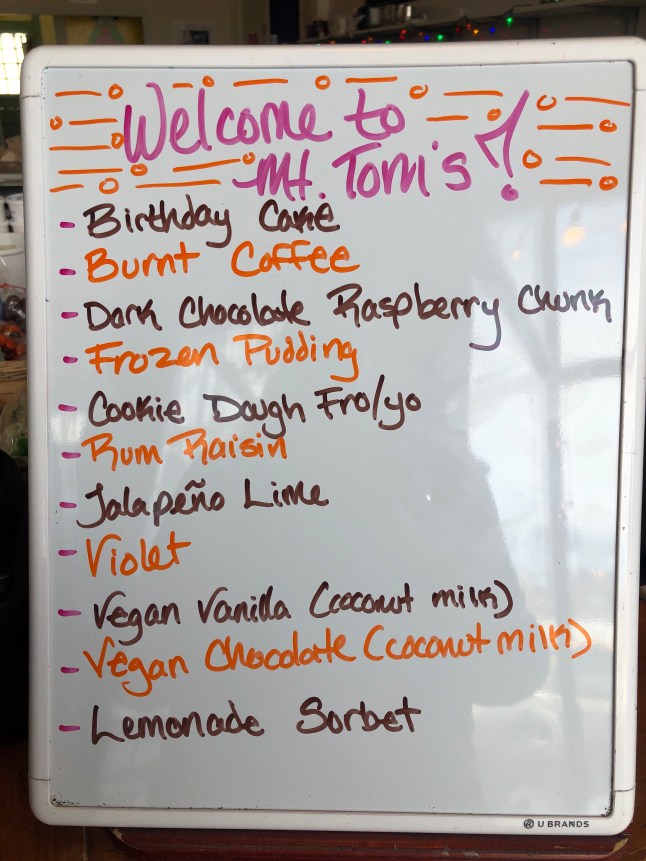 Welcome to
Mt. Tom's!
- Birthday Cake
- Burnt Coffee
- Dark Chocolate Raspberry Chunk
- Frozen Pudding
- Cookie Dough Fro/yo
- Rum Raisin
- Jalapeño Lime
- Violet
- Vegan Vanilla (coconut milk)
- Vegan Chocolate (coconut milk)
- Lemonade Sorbet
U BRANDS